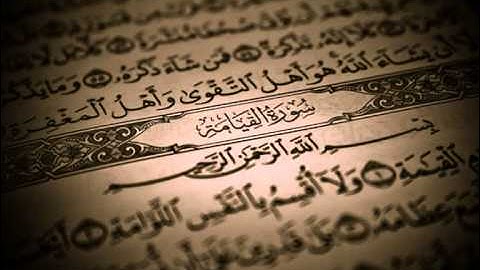 صُحُفًا مُّنَشَّرَةً كَلَّا بَل لَّا
كَلَّآ إِنَّهُۥ تَذْكِرَةٌ ۝ فَمَن شَآءَ ذَكَرَهُۥ ۝ وَمَا يَذْكُرُونَ
أَن يَشَآءَ ٱللَّهُ هُوَ أَهْلُ ٱلتَّقْوَىٰ وَأَهْلُ ٱلْمَغْفِرَةِ
سُورَةُ القِيَامَةِ
بِسْمِ ٱللَّهِ ٱلرَّحْمَٰنِ ٱلرَّحِيمِ
ٱلْقِيَٰمَةِ ۝ وَلَآ أُقْسِمُ بِٱلنَّفْسِ ٱللَّوَّامَةِ ۝
عِظَامَهُۥ ۝ بَلَىٰ قَٰدِرِينَ عَلَىٰٓ أَن